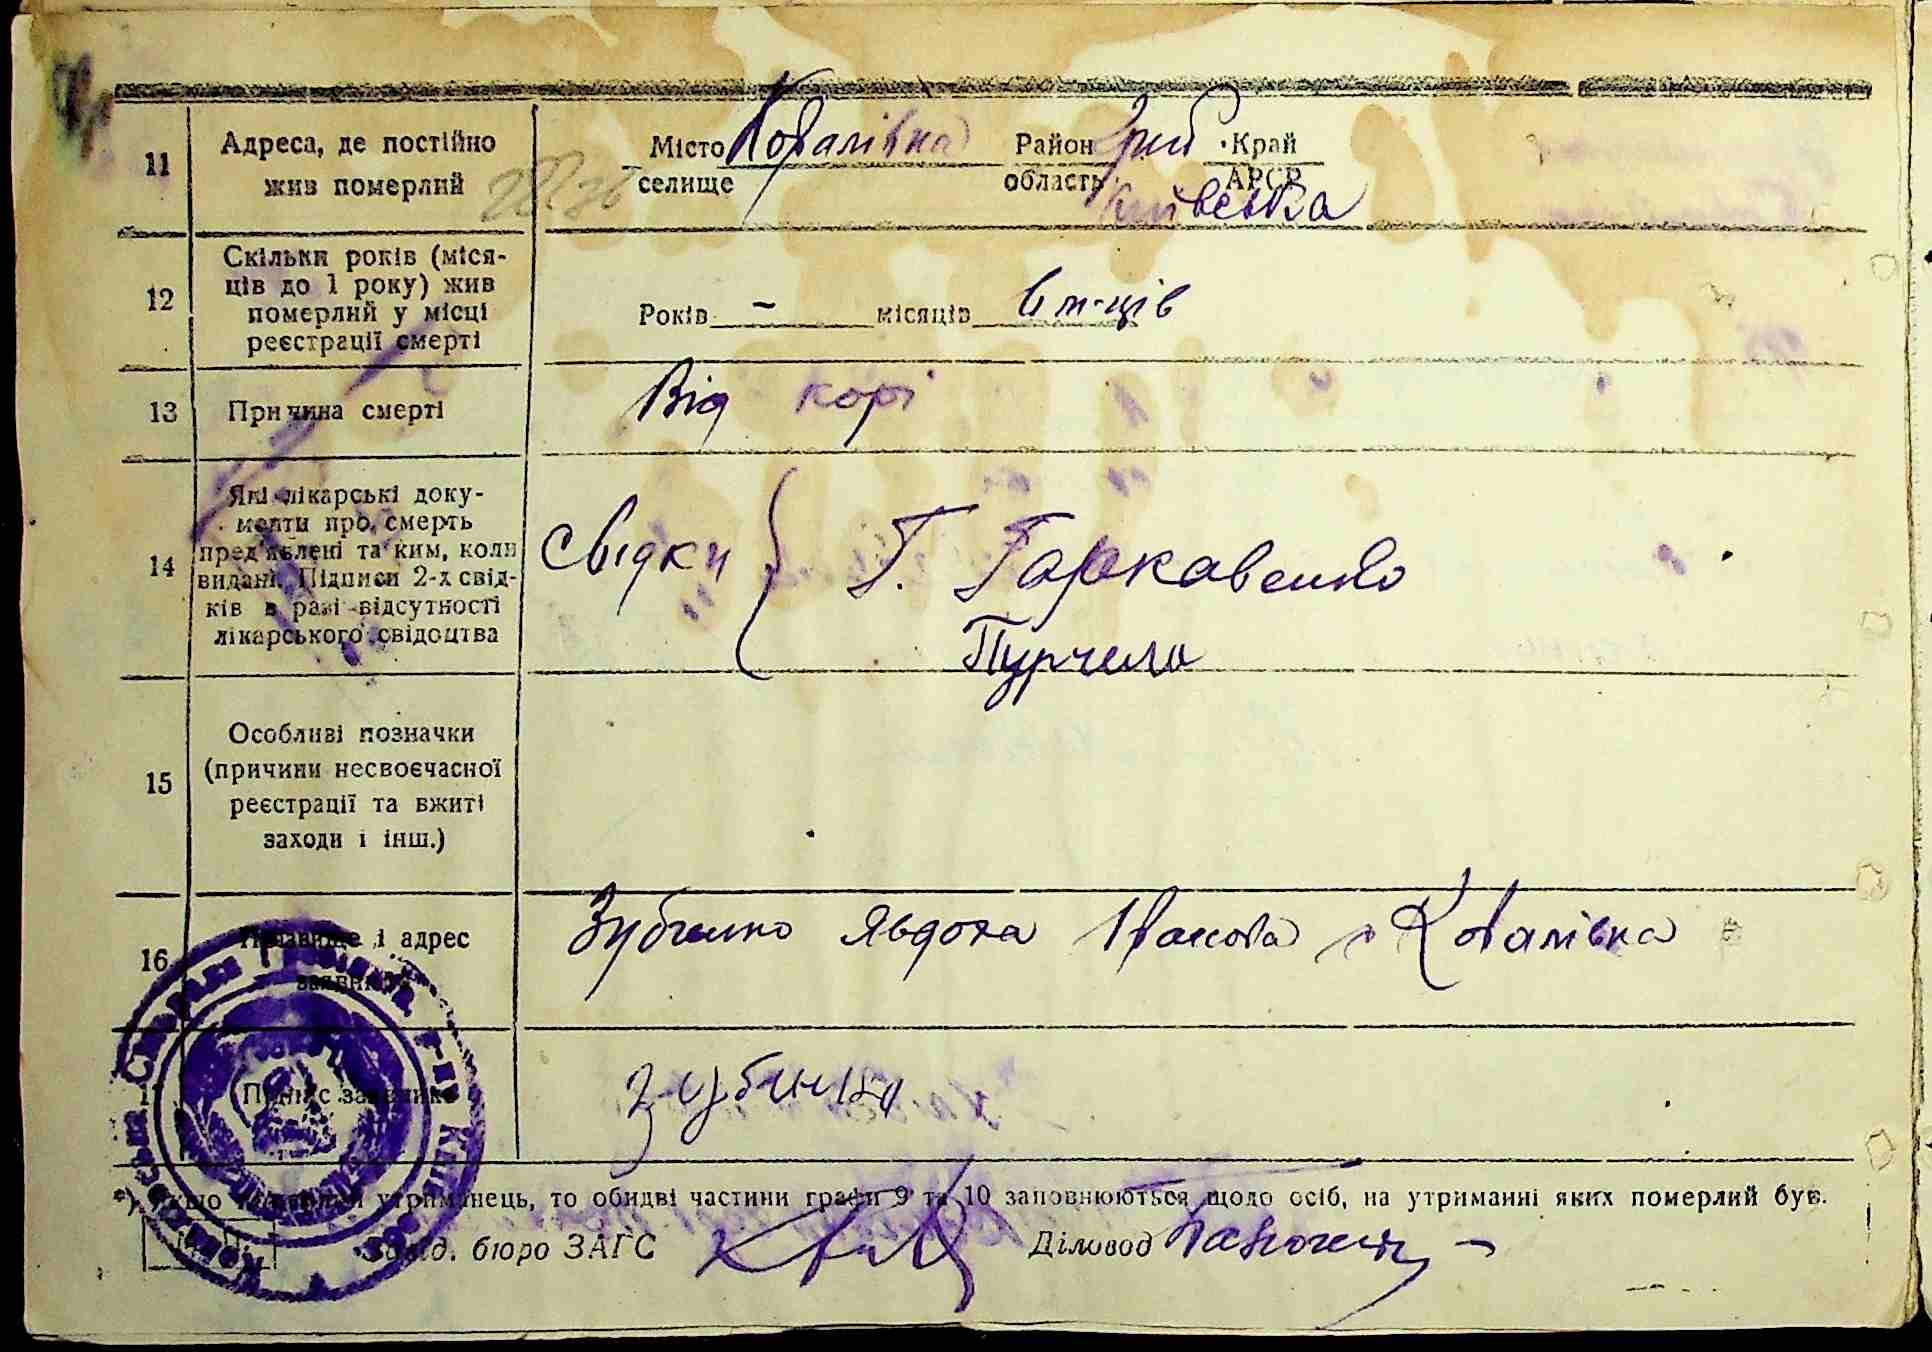 11 Адреса, де постійно
жив померлий
Місто Ковалівка Район Край
селище область АРСР
Київська
12 Скільки років (міся-
ців до 1 року) жив
померлий у місці
реєстрації смерті
Років - місяців 6 м-ців
13 Причина смерті Від корі
14 Які лікарські доку-
менти про смерть
пред'явлені та ким, коли
видані. Підписи 2-х свід-
ків в разі відсутності
лікарського свідоцтва
Свідки Г. Гаркавенко
15 Особливі позначки
(причини несвоєчасної
реєстрації та вжиті
заходи і інш.)
16 Прізвище і адрес
заявника
Зубченко Явдоха Ковалівка
17 Підпис заявника
*) Якщо померлий утриманець, то обидві частини графи 9 та 10 заповнюються щодо осіб, на утриманні яких померлий був.
Завід. бюро ЗАГС Діловод